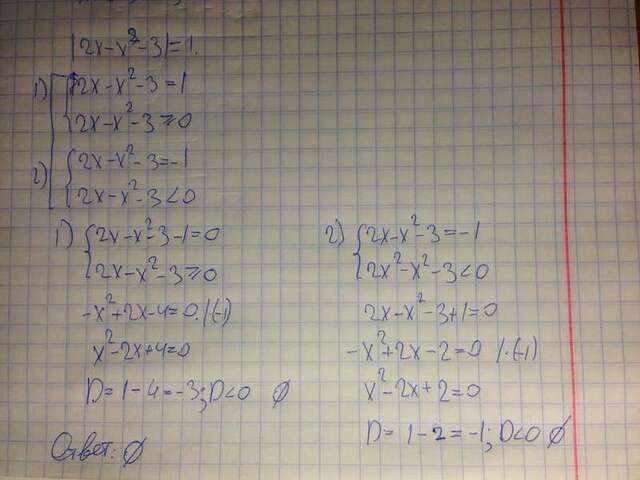 |2x-x²-3|=1.
1) {2x-x²-3=1
{2x-x²-3≥0
2) {2x-x²-3=-1
{2x-x²-3<0
1) {2x-x²-3-1=0
{2x-x²-3≥0
-x²+2x-4=0.|·(-1)
x²-2x+4=0
D=1-4=-3; D<0 ∅
2) {2x-x²-3=-1
{2x²-x²-3<0
2x-x²-3+1=0
-x²+2x-2=0 |·(-1)
x²-2x+2=0
D=1-2=-1; D<0 ∅
Ответ: ∅